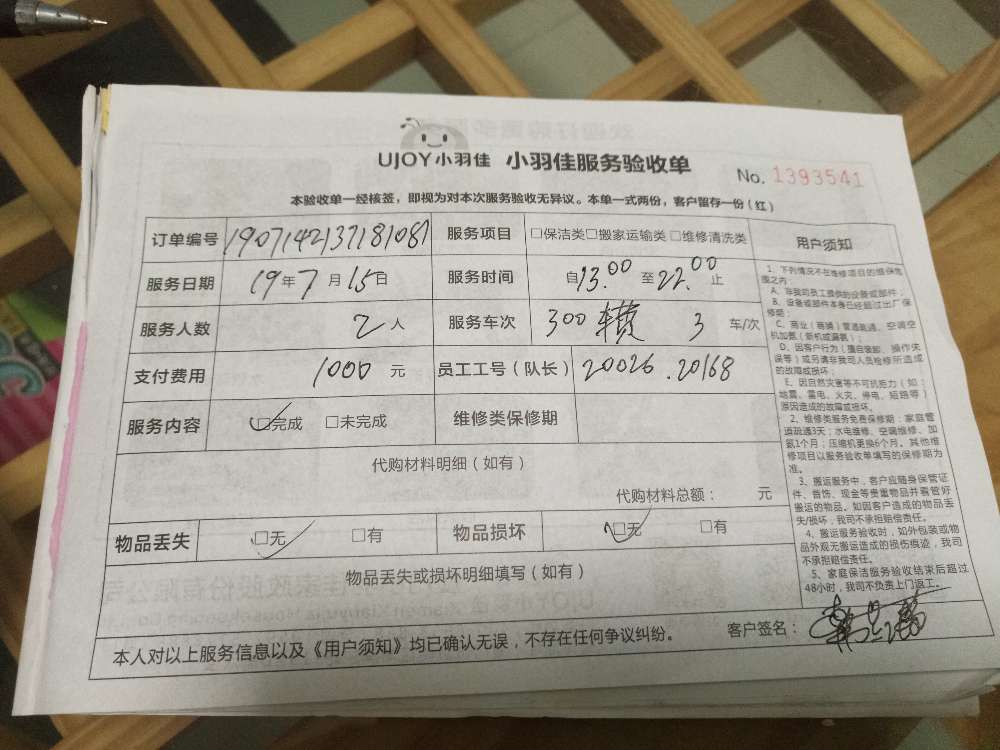 UJOY小羽佳 小羽佳服务验收单
No. 1393541
本验收单一经核签，即视为对本次服务验收无异议。本单一式两份，客户留存一份（红）
订单编号 190714213718108 服务项目 □保洁类□搬家运输类 □维修清洗类
服务日期 19年7月15日 服务时间 自13.00至22.00止
服务人数 2人 服务车次 300 3 车/次
支付费用 1000 元 员工工号（队长） 20026 .20168
服务内容 □完成 □未完成 维修类保修期
代购材料明细（如有）
代购材料总额： 元
物品丢失 □无 □有 物品损坏 □无 □有
物品丢失或损坏明细填写（如有）
本人对以上服务信息以及《用户须知》均已确认无误，不存在任何争议纠纷。
客户签名：
用户须知
1、下列情况不在维修项目的维保范
围之内：
A、非我司员工提供的设备或部件；
B、设备或部件本身已经超过出厂保
修期；
C、商业（商铺）管道疏通、空调空
机加氨（新机或漏氨）；
D、因客户行为（擅自装卸、操作失
误等）或另请非我司人员检修所造成
的故障或损坏；
E、因自然灾害等不可抗拒力（如：
地震、雷电、火灾、停电、短路等）
原因造成的故障或损坏。
2、维修类服务免费保修期：家庭管
道疏通3天；水电维修、空调维修、加
氨1个月；压缩机更换6个月。其他维
修项目以服务验收单填写的保修期为
准。
3、搬运服务中，客户应随身保管证
件、首饰、现金等贵重物品并看管好
搬运的物品。如因客户造成的物品丢
失/损坏，我司不承担赔偿责任。
4、搬运服务验收时，如外包装或物
品外观无搬运造成的损伤痕迹，我司
不承担赔偿责任。
5、家庭保洁服务验收结束后超过
48小时，我司不负责上门返工。